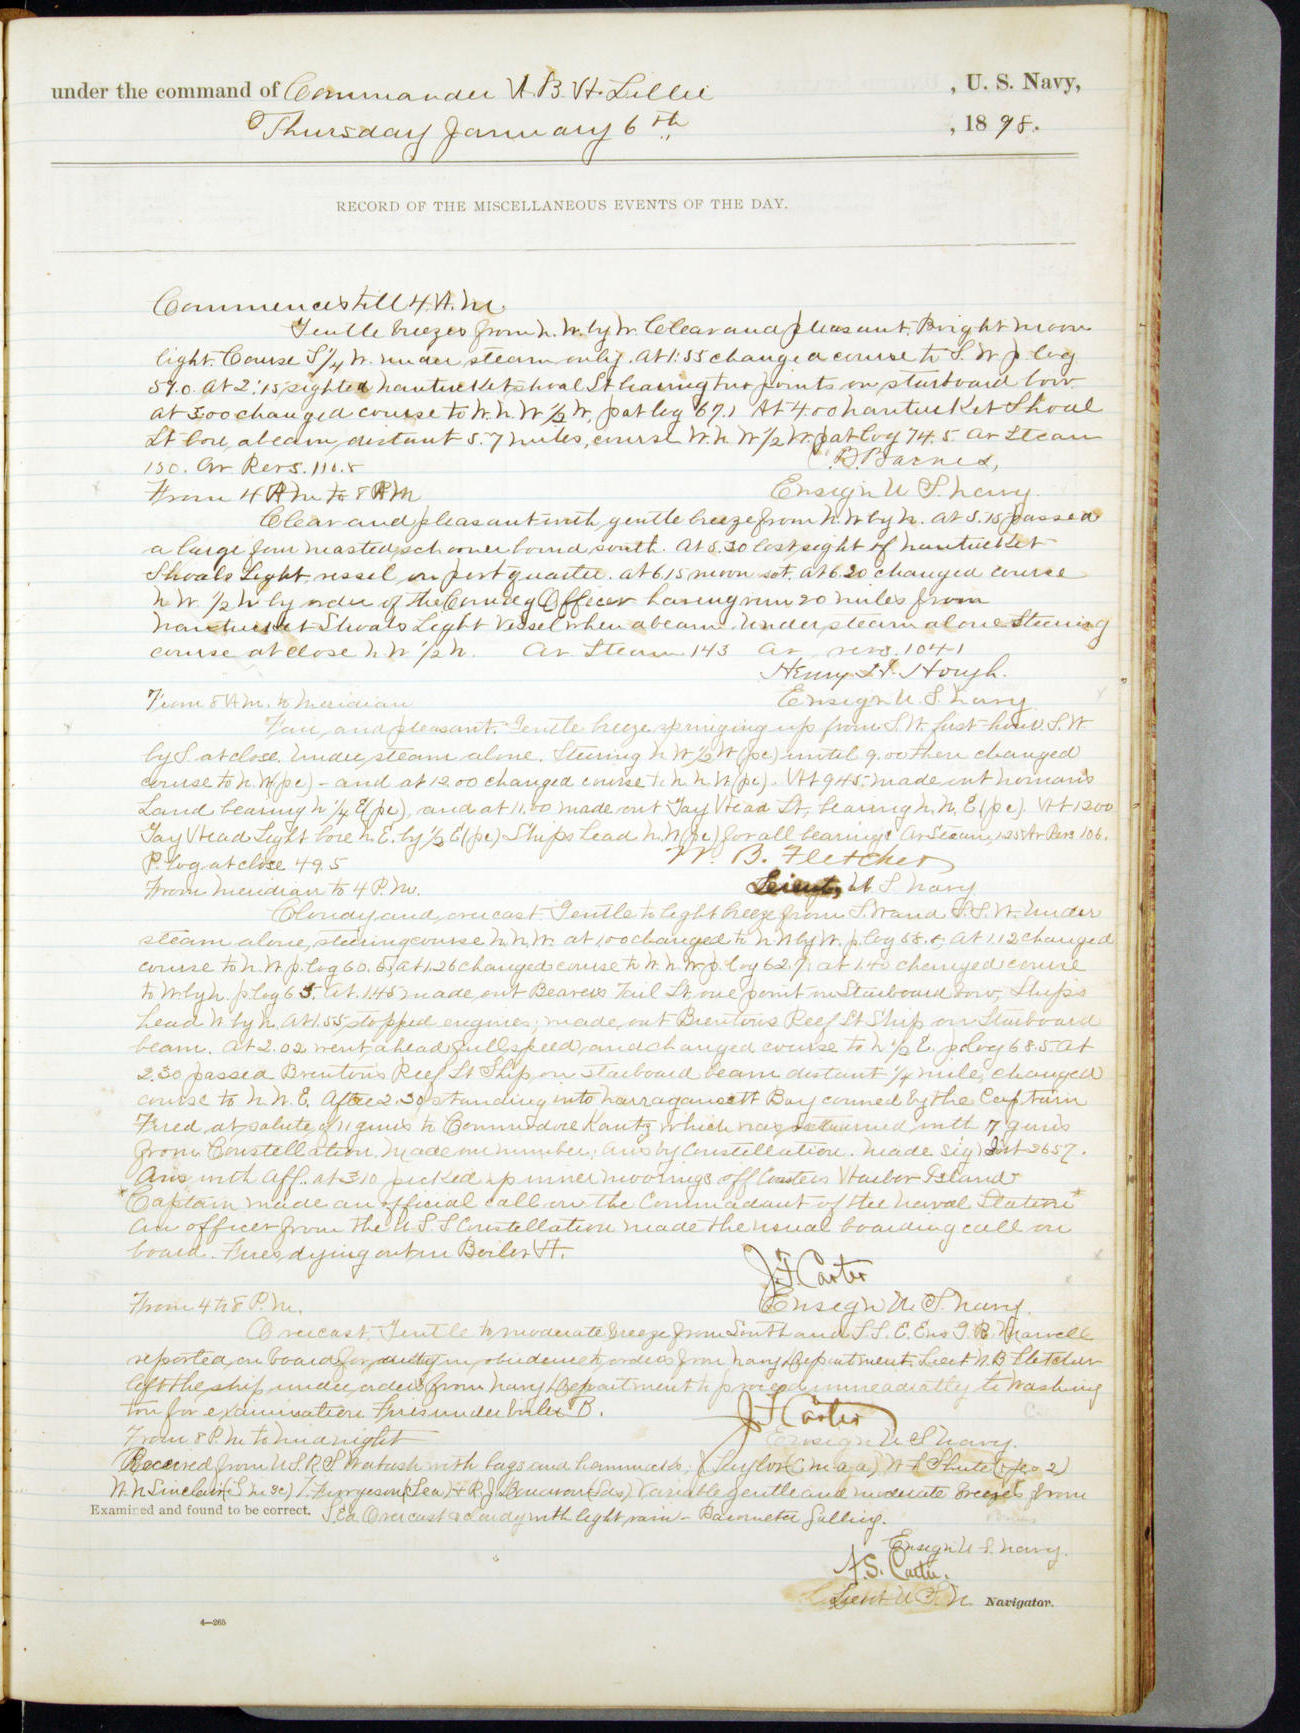 under the command of Commander A. B. H. Lillie , U. S. Navy,
Thursday January 6th , 1898.
RECORD OF THE MISCELLANEOUS EVENTS OF THE DAY.
Commences till 4 A.M.
Gentle breezes from N.W. by W. Clear and pleasant. Bright moon
light. Course S 1/4 W. under steam only. At 1:55 changed course to S.W. p. log
59.0. At 2:15 sighted Nantucket shoal Lt bearing two points on starboard bow
at 3:00 changed course to W.N.W 1/2 W, pat log 67.1 At 4.00 Nantucket Shoal
Lt bore abeam, distant 5.7 miles, course W.N.W 1/2 W. pat log 74.5. Av Steam
150. Av Revs. 110.8
C. B. Barnes,
From 4 A.M. to 8 A.M. Ensign U.S. Navy.
Clear and pleasant with gentle breeze from N.W by N. At 5.15 passed
a large four masted schooner bound south. At 5.30 lost sight of Nantucket
Shoals Light vessel on port quarter. At 6.15 moon set. At 6.20 changed course
N W. 1/2 N by order of the Comdg Officer having run 20 miles from
Nantucket Shoals Light Vessel when abeam. Under steam alone steering
course at close N W 1/2 N. Av Steam 143 Av revs. 104.1
Henry H. Hough.
From 8 A.M. to Meridian Ensign U.S. Navy
Fair and pleasant. Gentle breeze springing up from S.W. first hour S.W
by S. at close. Under steam alone. Steering N W 1/2 W (pc) until 9.00 then changed
course to N.W (pc) - and at 12.00 changed course to N N W (pc). At 9.45 made out Nomans
Land bearing N 1/4 E (pc), and at 11.00 made out Gay Head Lt, bearing N.N.E (pc). At 12.00
Gay Head Light bore N.E. by 1/2 E (pc) Ships head N.W (pc) for all bearings Av Steam, 125 Av Revs 106.
P. log at close 49.5 W. B. Fletcher
From Meridian to 4 P.M. Lieut, U.S. Navy
Cloudy and overcast. Gentle to light breeze from S.W and S.S.W. Under
steam alone, steering course N.N.W. at 1.00 changed to N W by W. p. log 58.8; At 1.12 changed
course to N.W p. log 60.5; at 1.26 changed course to W.N.W p. log 62.9; at 1.40 changed course
to W by N. p log 65. At 1.45 made out Beavers Tail Lt one point on Starboard bow, Ships
head W by N. At 1.55 stopped engines; made out Brentons Reef Lt Ship on Starboard
beam. At 2.02 went ahead full speed and changed course to N 1/2 E. p. log 68.5 At
2.30 passed Brentons Reef Lt Ship on starboard beam distant 1/4 mile, changed
course to N.N.E. After 2.30 standing into Narragansett Bay conned by the Captain
Fired at salute of 11 guns to Commodore Kautz which was returned with 7 guns
from Constellation. Made our number; Ans by Constellation. Made sig Int 2657.
Ans with Aff. At 3.10 picked up inner moorings off Coasters Harbor Island
* Captain made an official call on the Commadant of the Naval Station *
An officer from the U S S Constellation made the usual boarding call on
board. Fires dying out in Boiler A.
J. F. Carter
From 4 to 8 P.M. Ensign U.S. Navy.
Overcast. Gentle to moderate breeze from South and S.S.E. Ens G. R. Marvell
reported on board for duty in obedience to orders from Navy Department. Lieut W. B Fletcher
left the ship under orders from Navy Department to proceed immeadiatly to Washing
ton for examination. Fires under boiler B. J F Carter
From 8 P.M to Midnight Ensign U S Navy.
Received from U.S.R.S Wabash with bags and hammocks; Saylor (C.m.a.a) W. F. (Yeo 2)
W. N Sinclair / (Sea) & R. J. (Lds) Variable gentle and moderate breezes from
Examined and found to be correct. S.Ed. Overcast & cloudy with light rain - Barometer falling.
Ensign U.S. Navy.
Lieut U.S.N. Navigator.
4—265